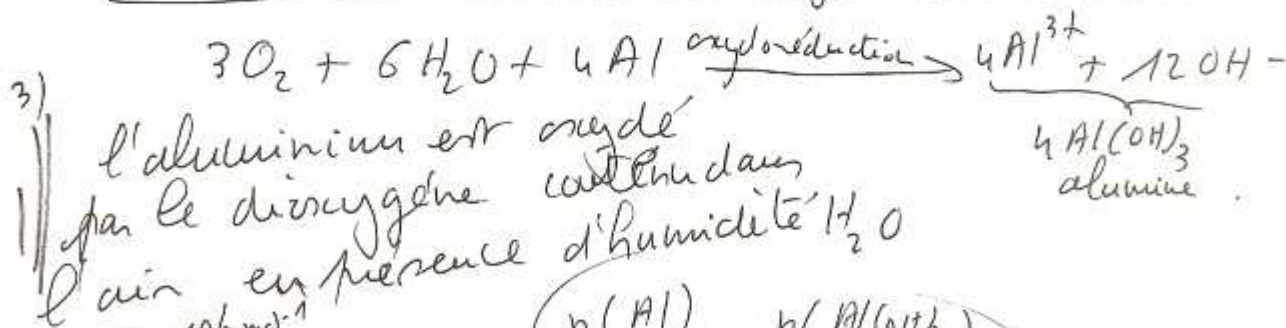 3O₂ + 6H₂O + 4Al oxydoréduction → 4Al³⁺ + 12OH⁻
4Al(OH)₃
alumine.
3) l'aluminium est oxydé
par le dioxygène contenu dans
l'air en présence d'humidité H₂O
n(Al) n(Al(OH)₃)